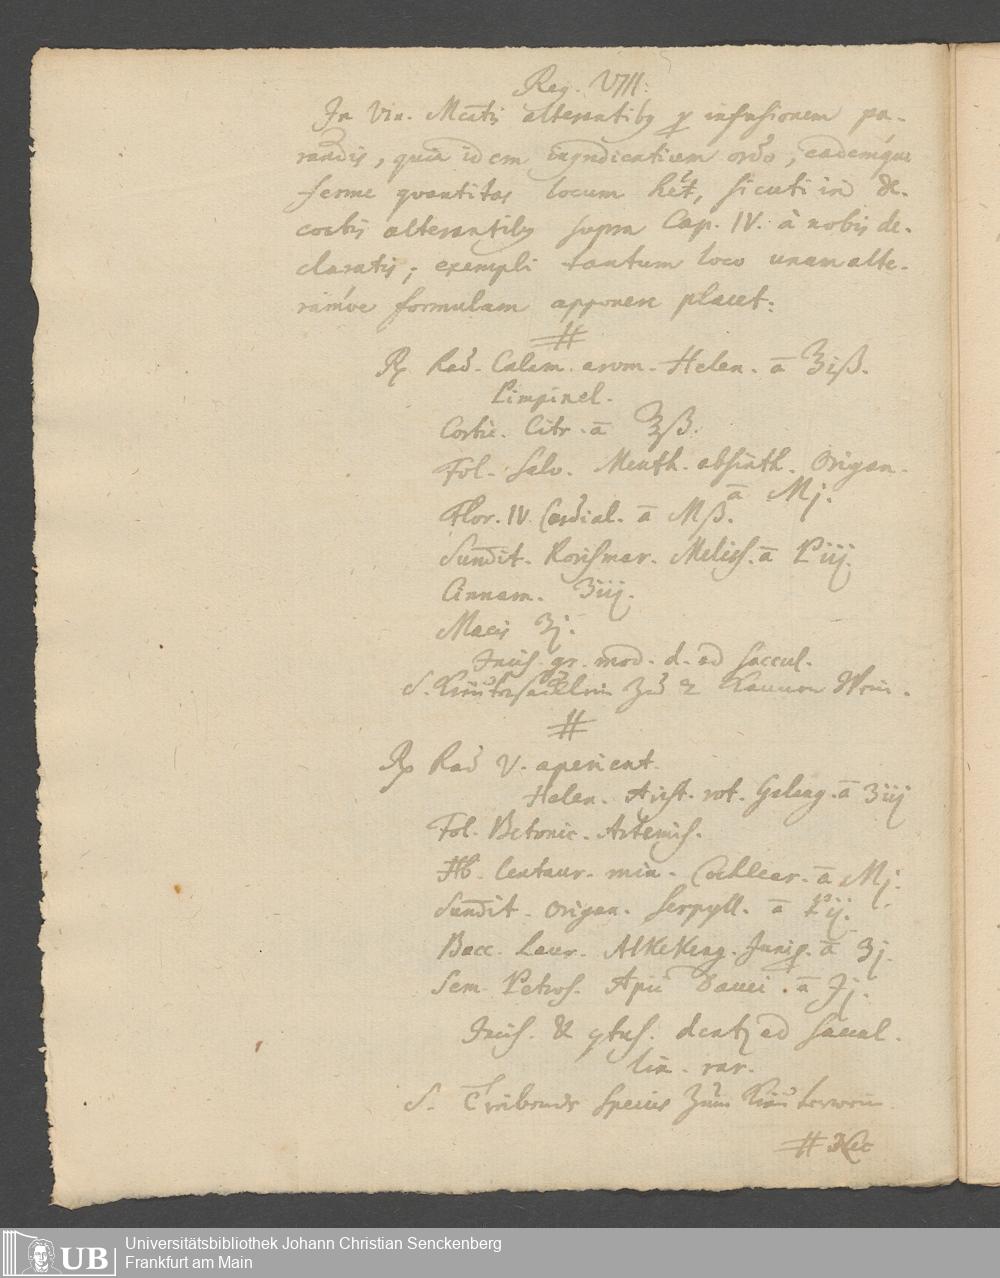 Reg. VIII.
In Vin. Mcatis alterantibq p infusionem pa-
randis, quia idem ingredientium ordo, eademque
ferme quantitas locum het, sicuti in de-
coctis alterantibq supra Cap. IV. à nobis de-
claratis; exempli tantum loco unam alte-
ramve formulam apponere placet.
#
Rx Rad. Calam. arom. Helen. ā ℥iß.
Pimpinel.
Cortic. Citr. ā ℥ß.
Fol. Salv. Menth. absinth. Origan.
ā Mj.
Flor. IV. Cordial. ā Mß.
Sumit. Rorismar. Meliss. ā Piij.
Cinnam. ʒiij.
Macis ʒj.
Incis. gr. mod. d. ad saccul.
S. Kräutersäcklein zu 2 Kannen Wein.
#
Rx Rad V. aperient.
Helen. Arist. rot. Galang. ā ʒiij
Fol. Betonic. Artemis.
Hb. Centaur. min. Cochlear. ā Mj.
Sumit. Origan. Serpyll. ā Pij.
Bacc. Laur. Alkekeng. Junip. ā ʒj.
Sem. Petros. Apii Dauci. ā ℈j.
Incis. & ctus. dentq ad saccul.
lin. rar.
S. Treibende Species zum Kräuterwein
# Rec